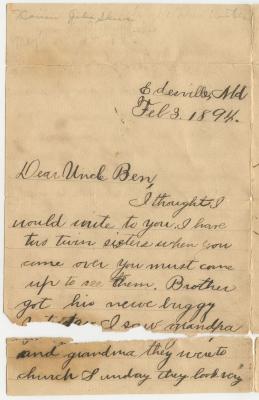 Edesville, Md
Feb 3. 1894.
Dear Uncle Ben,
I thought I
would write to you I have
two twin sisters when you
come over you must come
up to see them. Brother
got his newe buggy
I saw grandpa
and grandma they wente
church Sunday they look very